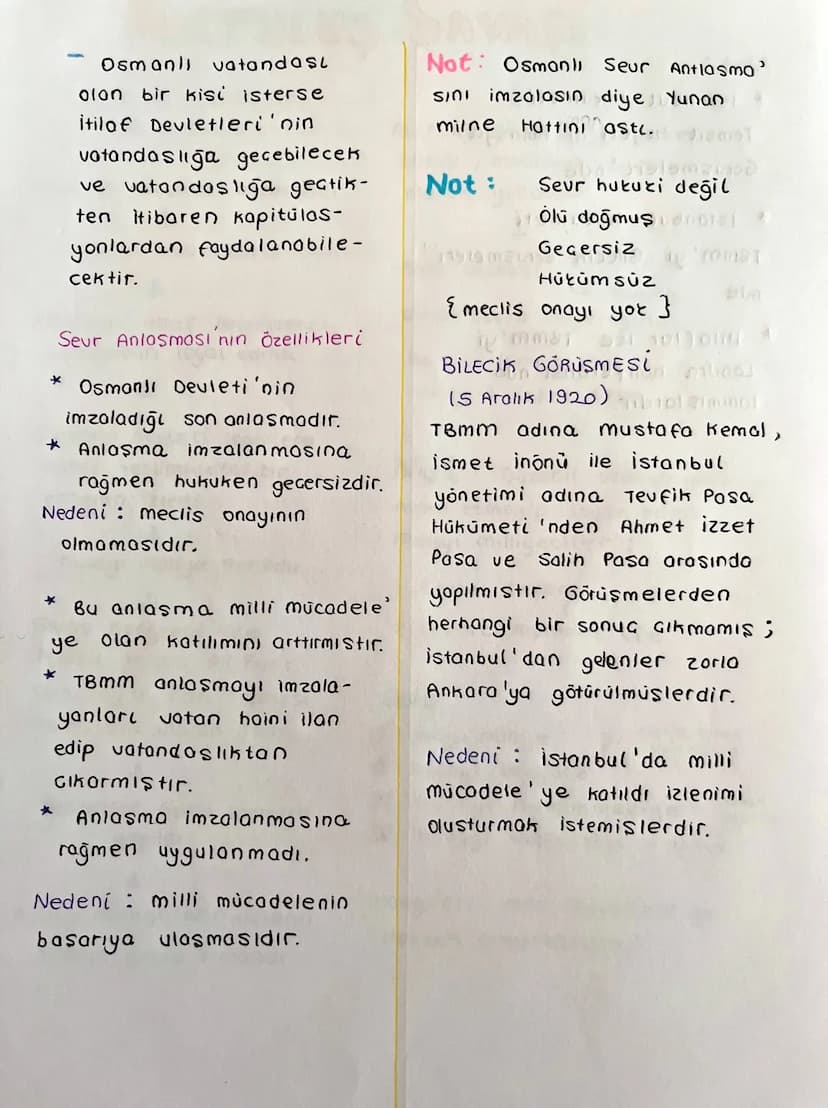 - Osmanlı vatandaşı
olan bir kişi isterse
İtilaf Devletleri'nin
vatandaşlığa geçebilecek
ve vatandaşlığa geçtik-
ten itibaren kapitülas-
yonlardan faydalanabile-
cektir.
Sevr Anlaşması'nın Özellikleri
* Osmanlı Devleti'nin
imzaladığı son anlaşmadır.
* Anlaşma imzalanmasına
rağmen hukuken geçersizdir.
Nedeni : meclis onayının
olmamasıdır.
* Bu anlaşma milli mücadele'
ye olan katılımını arttırmıştır.
* TBMM anlaşmayı imzala-
yanları vatan haini ilan
edip vatandaşlıktan
çıkarmıştır.
* Anlaşma imzalanmasına
rağmen uygulanmadı.
Nedeni : milli mücadelenin
başarıya ulaşmasıdır.
Not : Osmanlı Sevr Antlaşma'
sını imzalasın diye Yunan
milne Hattını aştı.
Not : Sevr hukuki değil
Ölü doğmuş
Geçersiz
Hükümsüz
{meclis onayı yok}
BİLECİK GÖRÜŞMESİ
(5 Aralık 1920)
TBMM adına mustafa kemal,
ismet inönü ile İstanbul
yönetimi adına Tevfik Paşa
Hükümeti'nden Ahmet izzet
Paşa ve Salih Paşa arasında
yapılmıştır. Görüşmelerden
herhangi bir sonuç çıkmamış ;
istanbul'dan gelenler zorla
Ankara'ya götürülmüşlerdir.
Nedeni : İstanbul'da milli
mücadele'ye katıldı izlenimi
oluşturmak istemişlerdir.